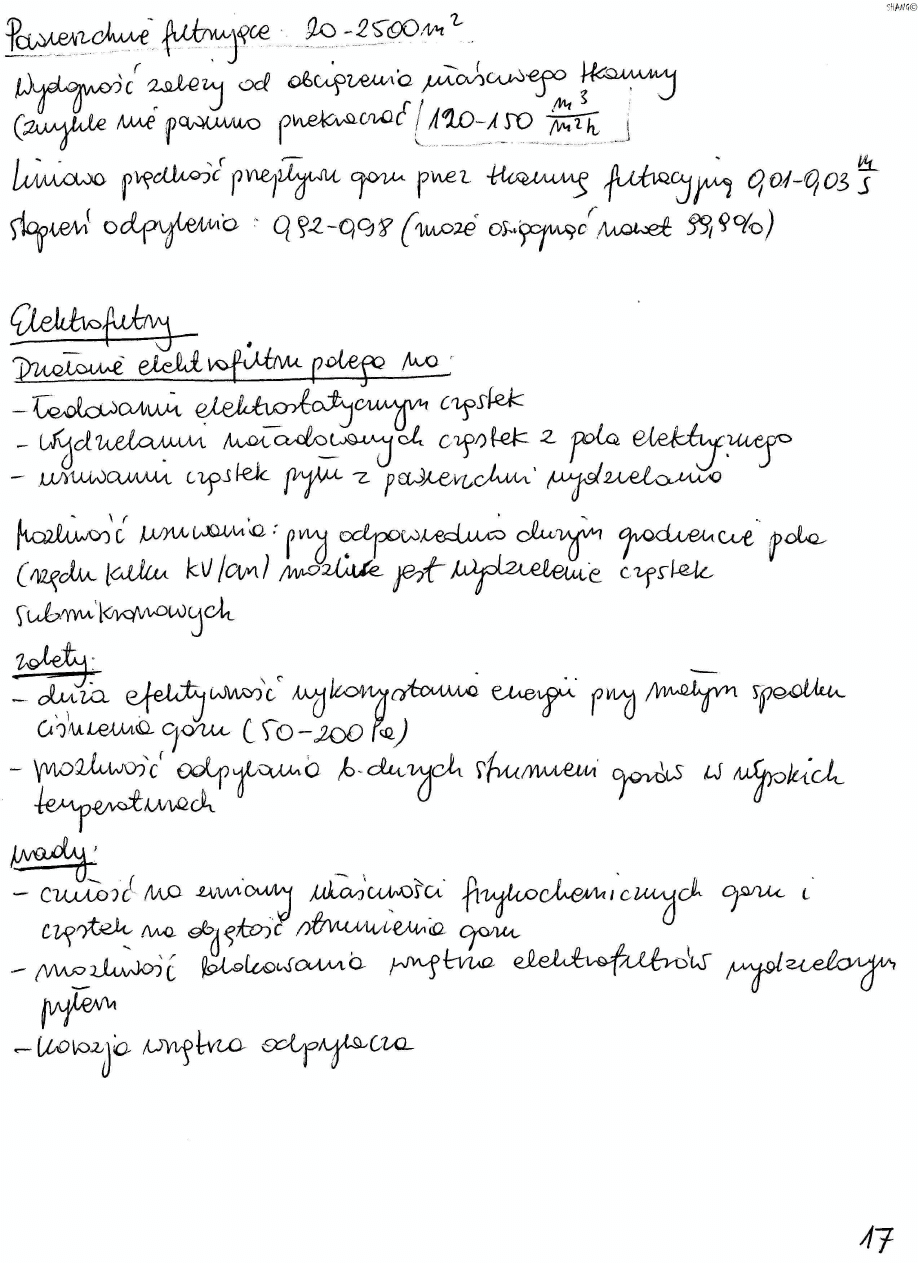 SHANG©
Powierzchnie filtrujące: 20-2500 m²
Wydajność zależy od obciążenia właściwego tkaniny
(zwykle nie powinno przekraczać 120-150 m³/m²h
Liniowa prędkość przepływu gazu przez tkaninę filtracyjną 0,01-0,03 m/s
stopień odpylenia: 0,92-0,98 (może osiągnąć nawet 99,9%)
Elektrofiltry
Działanie elektrofiltru polega na:
- ładowaniu elektrostatycznym cząstek
- wydzielaniu naładowanych cząstek z pola elektrycznego
- usuwaniu cząstek pyłu z powierzchni wydzielania
Możliwość usuwania: przy odpowiednio dużym gradiencie pola
(rzędu kilku kV/cm) możliwe jest wydzielenie cząstek
submikronowych
zalety:
- duża efektywność wykorzystania energii przy małym spadku
ciśnienia gazu (50-200 Pa)
- możliwość odpylania b. dużych strumieni gazów w wysokich
temperaturach
wady:
- czułość na zmiany właściwości fizykochemicznych gazu i
cząstek na objętość strumienia gazu
- możliwość blokowania wnętrza elektrofiltrów wydzielonym
pyłem
- korozja wnętrza odpylacza
17